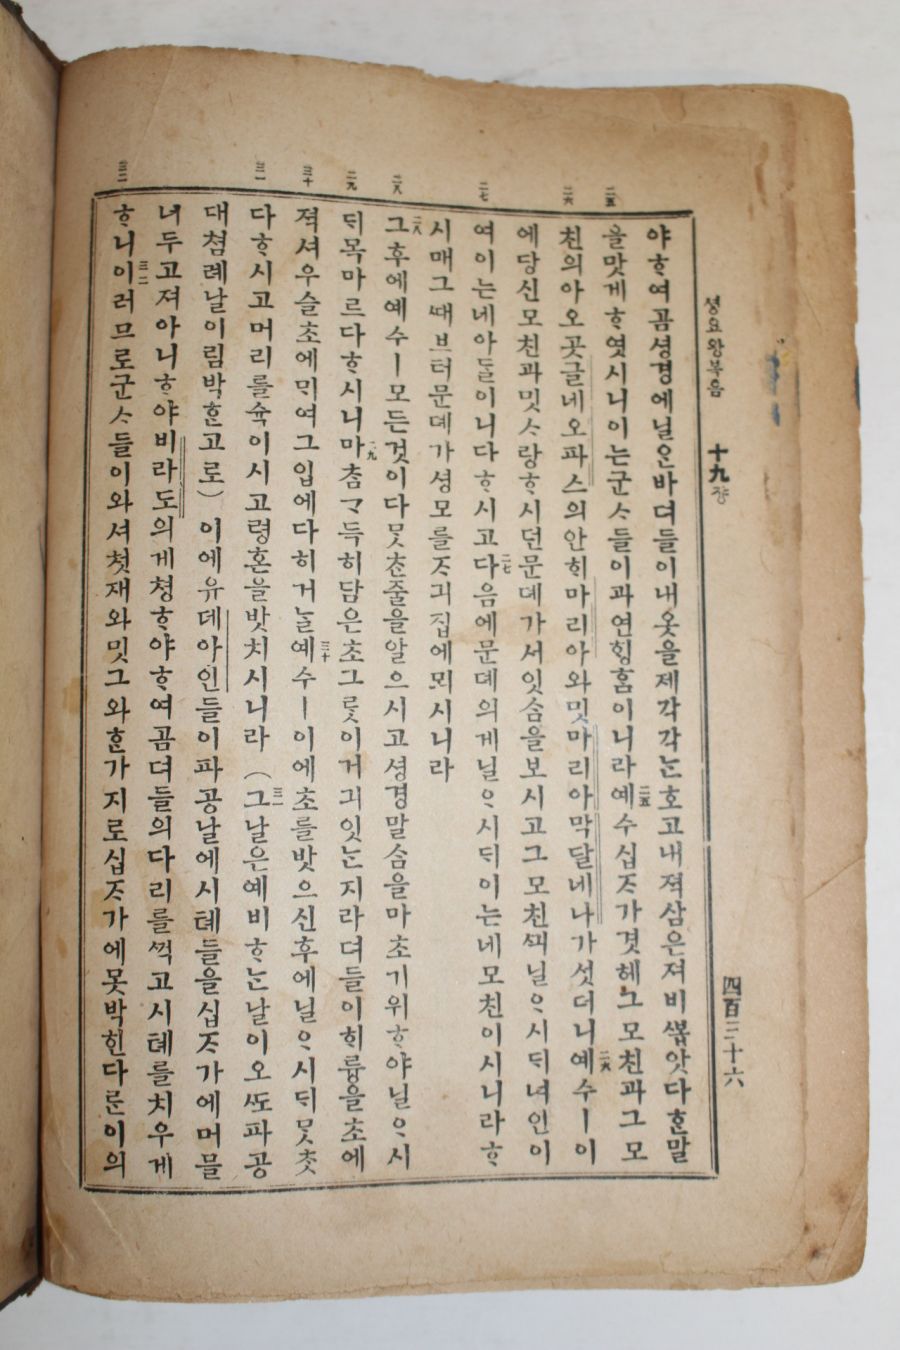 셩요왕복음 十九쟝 四百三十六
二五 二六 二七 二八 二九 三十 三一 三二
야ᄒᆞ여곰셩경에닐ᄋᆞᆫ바뎌들이내옷을제각각ᄂᆞᆫ호고내젹삼은져비ᄲᅩᆸ앗다ᄒᆞᆫ말
을맛게ᄒᆞ엿시니이는군ᄉᆞ들이과연ᄒᆡᆼᄒᆞᆷ이니라二五예수십ᄌᆞ가겻헤그모친과그모
친의아오곳글네오파스의안ᄒᆡ마리아와밋마리아막달네나가섯더니二六예수ㅣ이
에당신모친과밋ᄉᆞ랑ᄒᆞ시던문뎨가서잇ᄉᆞᆷ을보시고그모친ᄭᅴ닐ᄋᆞ시ᄃᆡ녀인이
여이는네아ᄃᆞᆯ이니다ᄒᆞ시고二七다음에문뎨의게닐ᄋᆞ시ᄃᆡ이는네모친이시니라ᄒᆞ
시매그ᄯᅢ브터문뎨가셩모를ᄌᆞ긔집에뫼시니라
二八그후에예수ㅣ모든것이다ᄆᆞᆺᄎᆞᆫ줄을알으시고셩경말ᄉᆞᆷ을마초기위ᄒᆞ야닐ᄋᆞ시
ᄃᆡ목마르다ᄒᆞ시니二九마ᄎᆞᆷᄀᆞ득히담은초그ᄅᆞᆺ이거긔잇ᄂᆞᆫ지라뎌들이ᄒᆡ륭을초에
젹셔우슬초에ᄆᆡ여그입에다히거ᄂᆞᆯ三十예수ㅣ이에초를밧으신후에닐ᄋᆞ시ᄃᆡᄆᆞᆺᄎᆞᆺ
다ᄒᆞ시고머리를숙이시고령혼을밧치시니라(三一그날은예비ᄒᆞᄂᆞᆫ날이오ᄯᅩ파공
대쳠례날이림박ᄒᆞᆫ고로)이에유데아인들이파공날에시톄들을십ᄌᆞ가에머믈
너두고져아니ᄒᆞ야비라도의게쳥ᄒᆞ야ᄒᆞ여곰뎌들의다리를ᄭᅥᆨ고시톄를치우게
ᄒᆞ니三二이러므로군ᄉᆞ들이와셔첫재와밋그와ᄒᆞᆫ가지로십ᄌᆞ가에못박힌다른이의